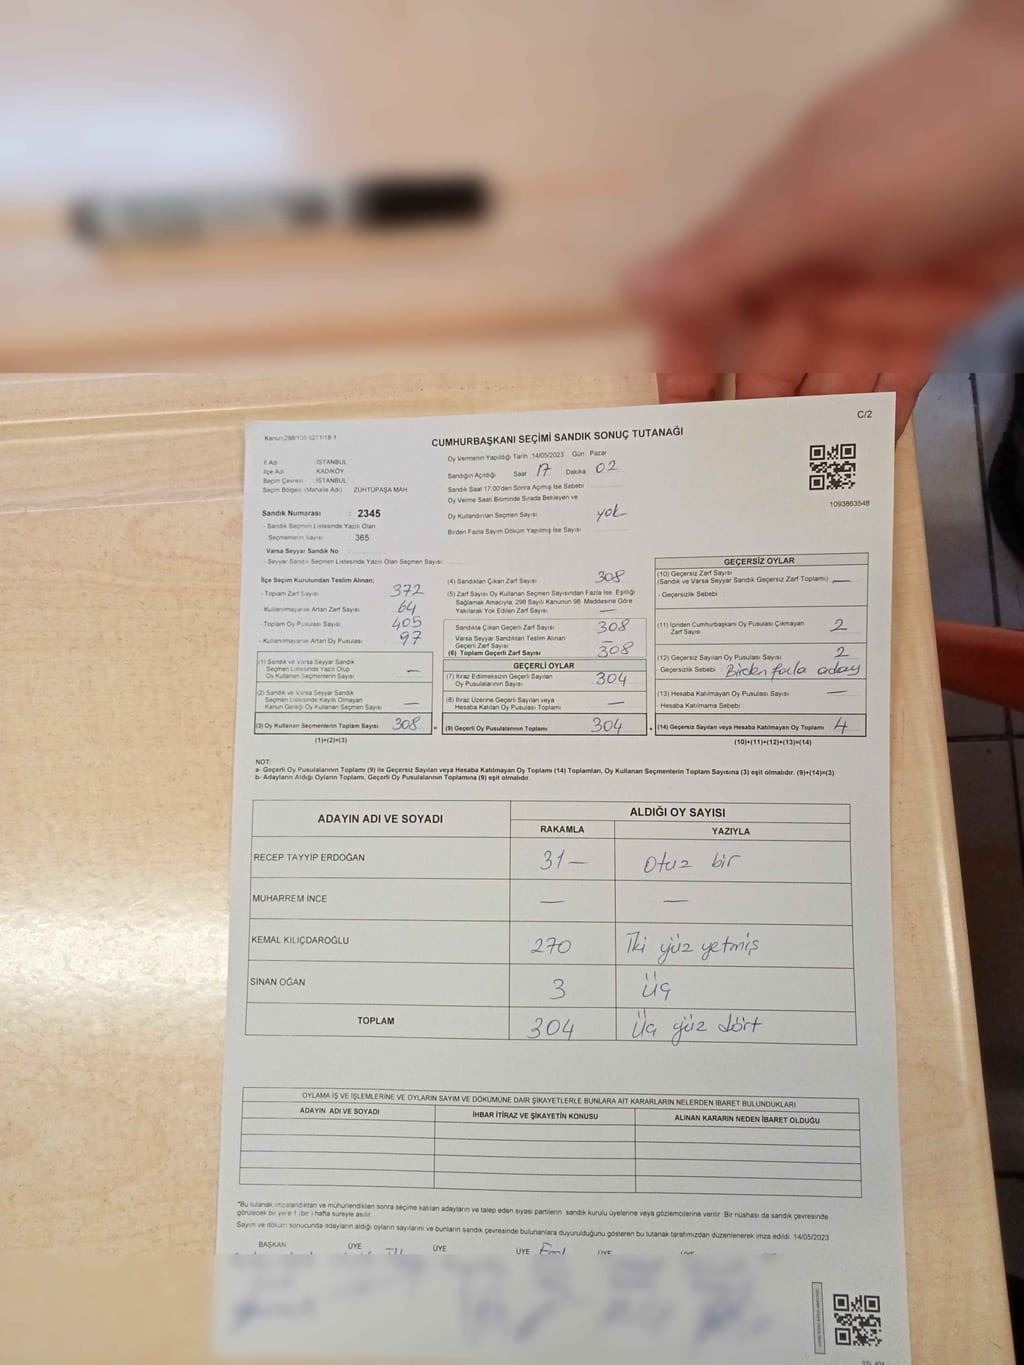 C/2
Kanun:298/105-5271/18-1
CUMHURBAŞKANI SEÇİMİ SANDIK SONUÇ TUTANAĞI
İl Adı İSTANBUL
İlçe Adı KADIKÖY
Seçim Çevresi : İSTANBUL
Seçim Bölgesi (Mahalle Adı) ZÜHTÜPAŞA MAH.
Sandık Numarası : 2345
- Sandık Seçmen Listesinde Yazılı Olan
Seçmenlerin Sayısı : 365
Varsa Seyyar Sandık No
- Seyyar Sandık Seçmen Listesinde Yazılı Olan Seçmen Sayısı
Oy Vermenin Yapıldığı Tarih :14/05/2023 Gün Pazar
Sandığın Açıldığı Saat 17 Dakika 02
Sandık Saat 17.00'den Sonra Açılmış İse Sebebi
Oy Verme Saati Bitiminde Sırada Bekleyen ve
Oy Kullandırılan Seçmen Sayısı yok
Birden Fazla Sayım Döküm Yapılmış İse Sayısı
1093863548
İlçe Seçim Kurulundan Teslim Alınan;
- Toplam Zarf Sayısı 372
- Kullanılmayarak Artan Zarf Sayısı 64
- Toplam Oy Pusulası Sayısı 405
- Kullanılmayarak Artan Oy Pusulası 97
(1) Sandık ve Varsa Seyyar Sandık
Seçmen Listesinde Yazılı Olup
Oy Kullanan Seçmenlerin Sayısı —
(2) Sandık ve Varsa Seyyar Sandık
Seçmen Listesinde Kayıtlı Olmayan
Kanun Gereği Oy Kullanan Seçmen Sayısı —
(3) Oy Kullanan Seçmenlerin Toplam Sayısı 308
(1)+(2)=(3)
(4) Sandıktan Çıkan Zarf Sayısı 308
(5) Zarf Sayısı Oy Kullanan Seçmen Sayısından Fazla İse, Eşitliği
Sağlamak Amacıyla, 298 Sayılı Kanunun 98. Maddesine Göre
Yakılarak Yok Edilen Zarf Sayısı —
Sandıkta Çıkan Geçerli Zarf Sayısı 308
Varsa Seyyar Sandıktan Teslim Alınan
Geçerli Zarf Sayısı —
(6) Toplam Geçerli Zarf Sayısı 308
GEÇERLİ OYLAR
(7) İtiraz Edilmeksizin Geçerli Sayılan
Oy Pusulalarının Sayısı 304
(8) İtiraz Üzerine Geçerli Sayılan veya
Hesaba Katılan Oy Pusulası Toplamı —
(9) Geçerli Oy Pusulalarının Toplamı 304
GEÇERSİZ OYLAR
(10) Geçersiz Zarf Sayısı
(Sandık ve Varsa Seyyar Sandık Geçersiz Zarf Toplamı) —
- Geçersizlik Sebebi
(11) İçinden Cumhurbaşkanı Oy Pusulası Çıkmayan
Zarf Sayısı 2
(12) Geçersiz Sayılan Oy Pusulası Sayısı 2
- Geçersizlik Sebebi Birden fazla aday
(13) Hesaba Katılmayan Oy Pusulası Sayısı —
- Hesaba Katılmama Sebebi
(14) Geçersiz Sayılan veya Hesaba Katılmayan Oy Toplamı 4
(10)+(11)+(12)+(13)=(14)
NOT:
a- Geçerli Oy Pusulalarının Toplamı (9) ile Geçersiz Sayılan veya Hesaba Katılmayan Oy Toplamı (14) Toplamları, Oy Kullanan Seçmenlerin Toplam Sayısına (3) eşit olmalıdır. (9)+(14)=(3)
b- Adayların Aldığı Oyların Toplamı, Geçerli Oy Pusulalarının Toplamına (9) eşit olmalıdır.
ADAYIN ADI VE SOYADI ALDIĞI OY SAYISI
RAKAMLA YAZIYLA
RECEP TAYYİP ERDOĞAN 31— Otuz bir
MUHARREM İNCE — —
KEMAL KILIÇDAROĞLU 270 İki yüz yetmiş
SİNAN OĞAN 3 Üç
TOPLAM 304 Üç yüz dört
OYLAMA İŞ VE İŞLEMLERİNE VE OYLARIN SAYIM VE DÖKÜMÜNE DAİR ŞİKAYETLERLE BUNLARA AİT KARARLARIN NELERDEN İBARET BULUNDUKLARI
ADAYIN ADI VE SOYADI İHBAR İTİRAZ VE ŞİKAYETİN KONUSU ALINAN KARARIN NEDEN İBARET OLDUĞU
*Bu tutanak imzalandıktan ve mühürlendikten sonra seçime katılan adayların ve talep eden siyasi partilerin sandık kurulu üyelerine veya gözlemcilerine verilir. Bir nüshası da sandık çevresinde
görülecek bir yere 1 (bir) hafta süreyle asılır.
Sayım ve döküm sonucunda adayların aldığı oyların sayılarını ve bunların sandık çevresinde bulunanlara duyurulduğunu gösteren bu tutanak tarafımızdan düzenlenerek imza edildi. 14/05/2023
BAŞKAN ÜYE ÜYE ÜYE ÜYE ÜYE